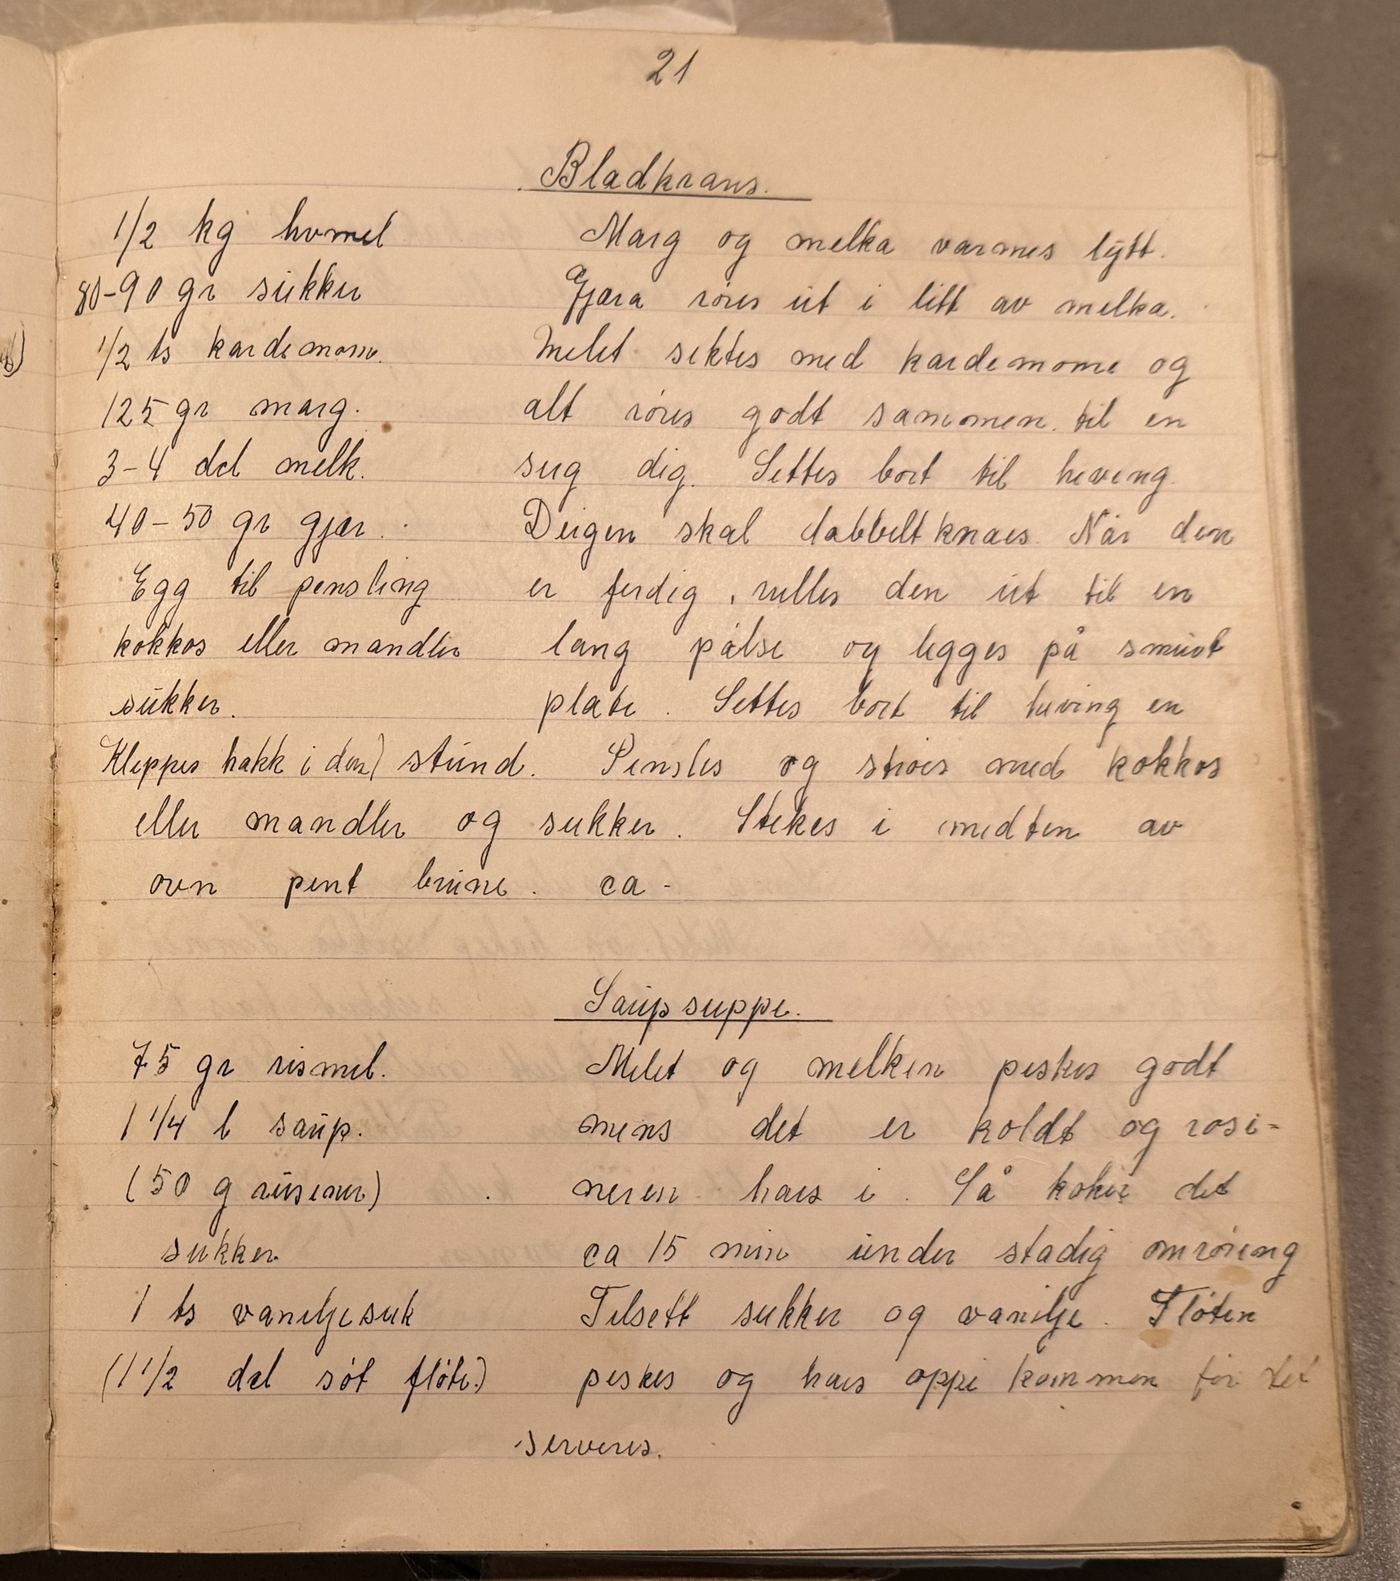 21
Bladkrans.
1/2 kg hvmel
80-90 gr sukker
1/2 ts kardemome.
125 gr marg.
3-4 dcl melk.
40-50 gr gjær.
Egg til pensling
kokkos eller mandler
sukker.
Marg og melka varmes lytt.
Gjæra røres ut i litt av melka.
Melet siktes med kardemome og
alt røres godt sammen til en
seig dig. Settes bort til heving.
Deigen skal dobbeltknaes. Når den
er ferdig, rulles den ut til en
lang pølse og legges på smurt
plate. Settes bort til heving en
Kleppes hakk i den) stund. Pensles og strøes med kokkos
eller mandler og sukker. Stekes i midten av
ovn pent brune. ca -
Saupsuppe.
75 gr rismel.
1 1/4 l saup.
(50 g rusiner)
sukker
1 ts vaniljesuk
(1 1/2 dcl søt fløte.)
Melet og melken peskes godt
mens det er koldt og rosi-
neren haes i. Så kokes det
ca 15 min under stadig omrøring
Tilsett sukker og vanilje. Fløten
peskes og haes oppi kommen før det
serveres.